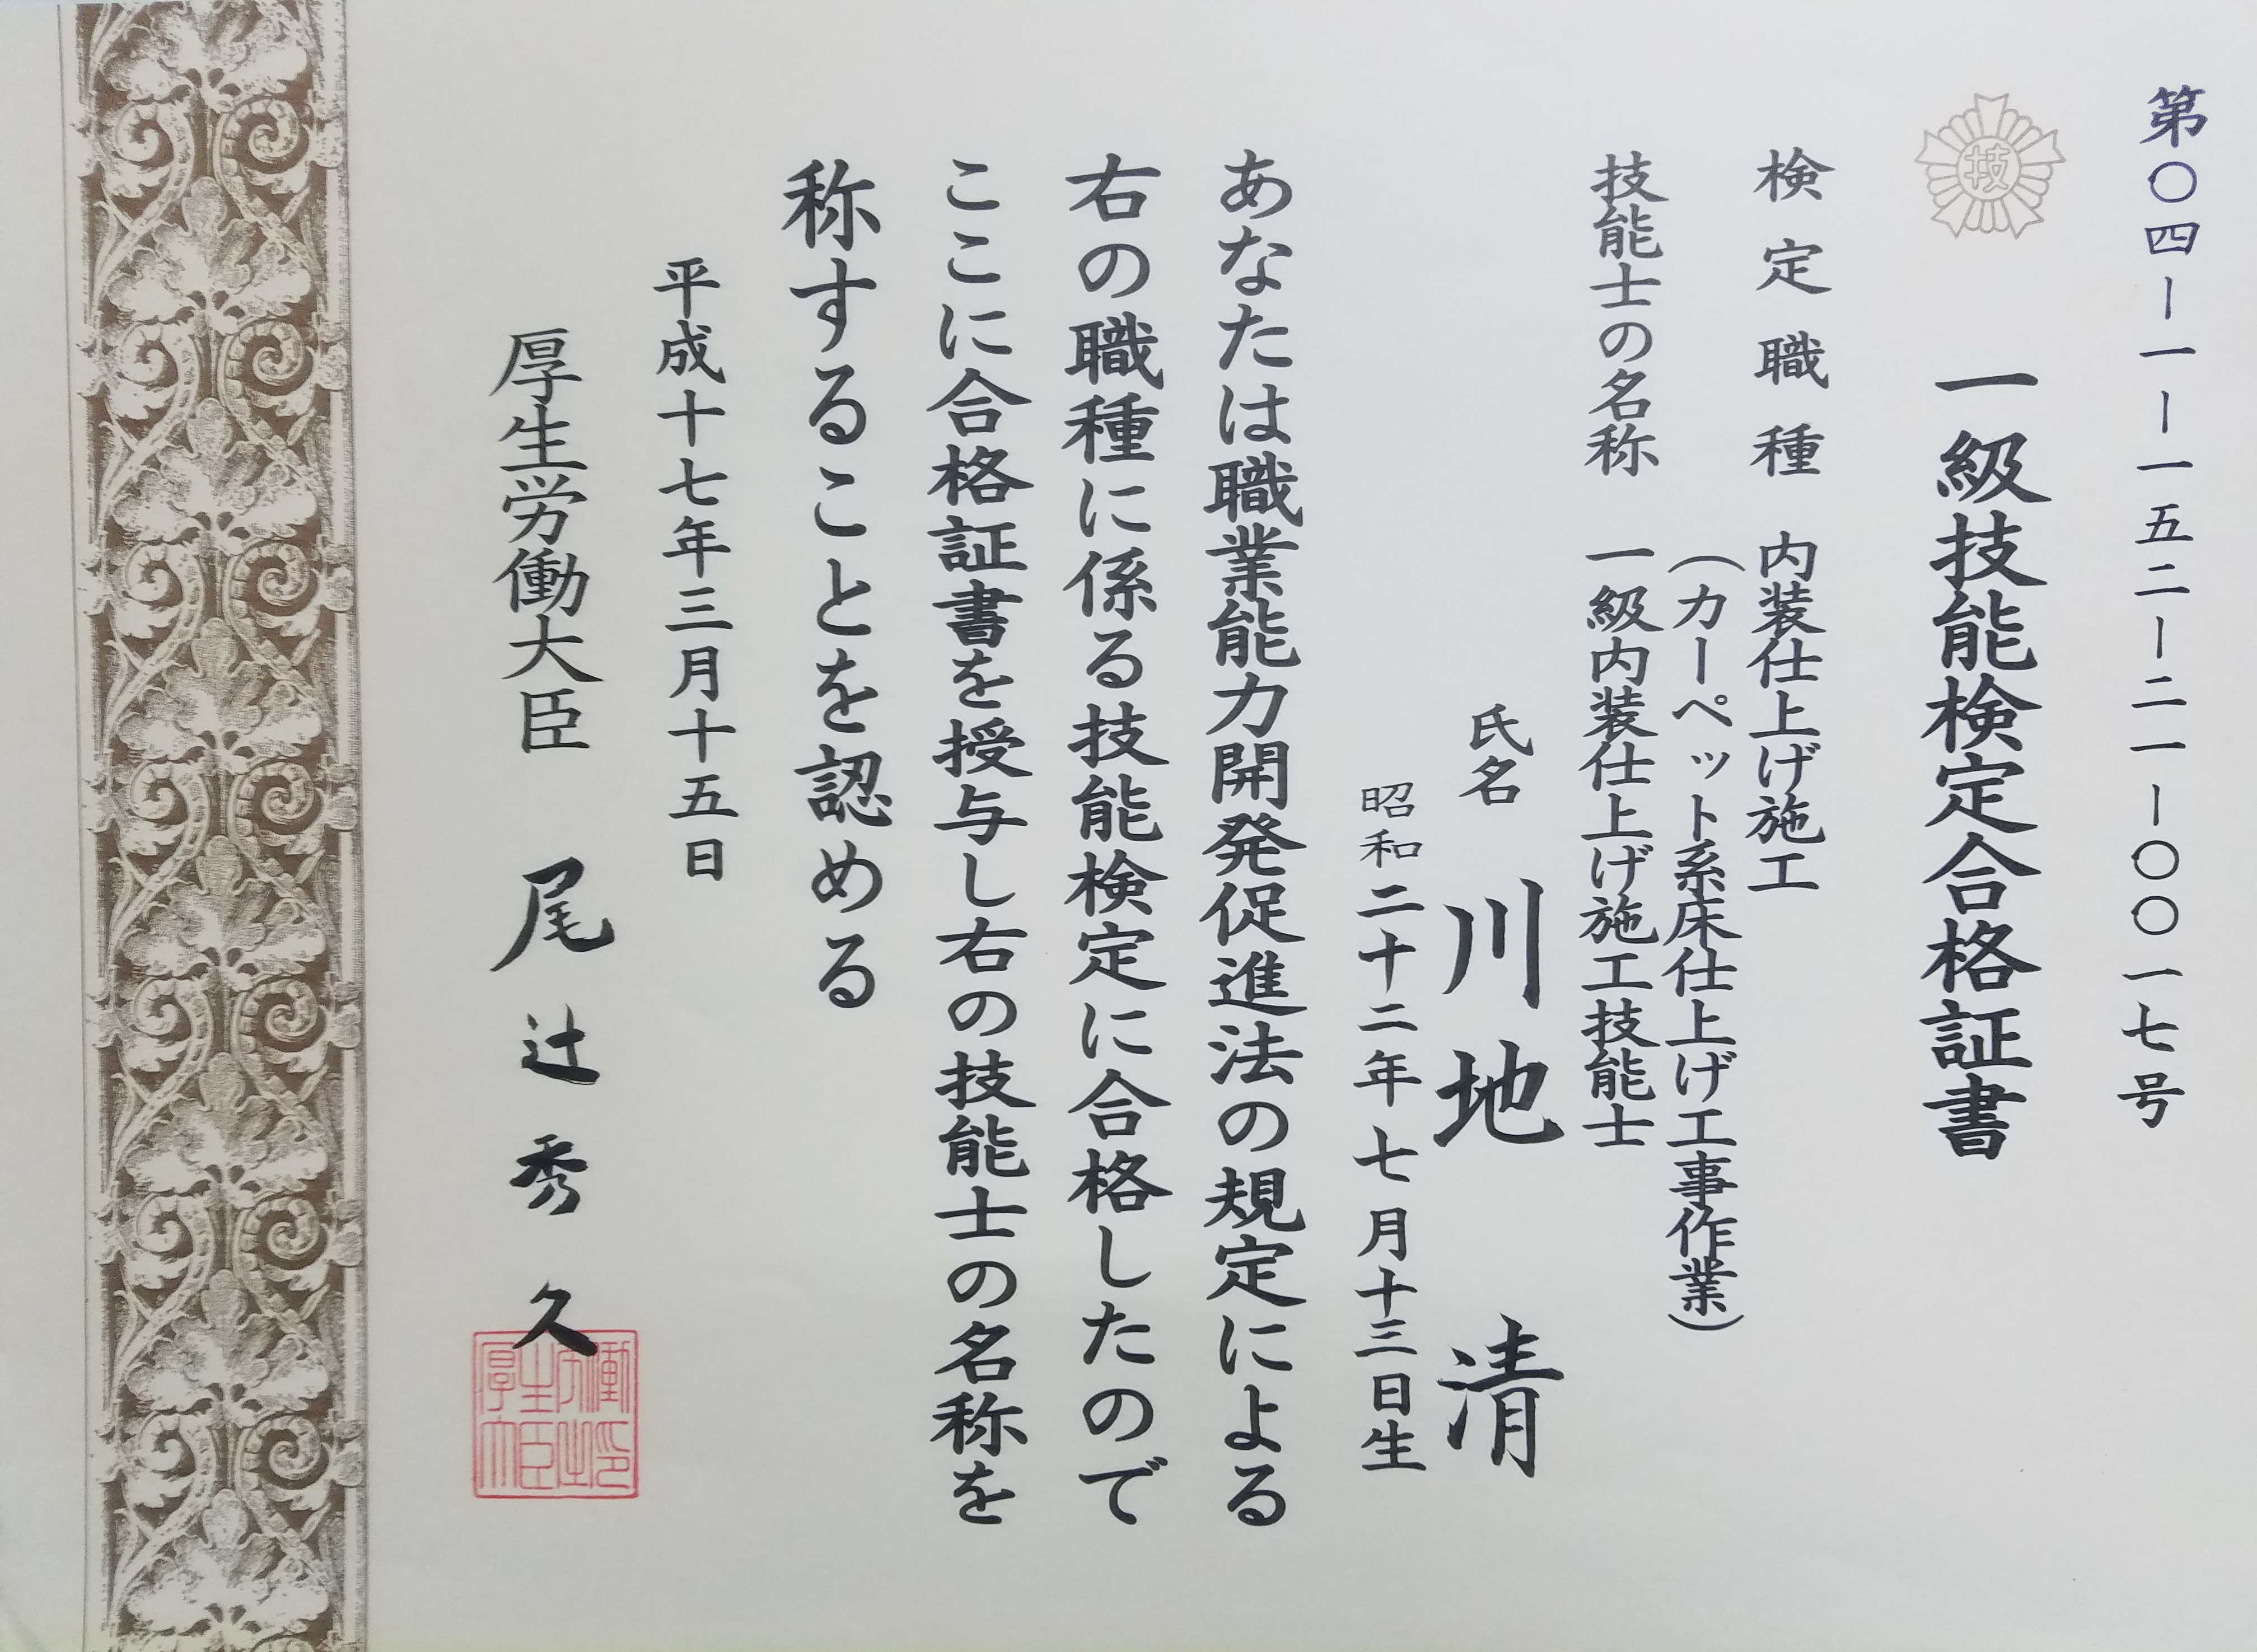 第〇四ー一ー一五二ー二一ー〇〇一七号
技
一級技能検定合格証書
検定職種 内装仕上げ施工
（カーペット系床仕上げ工事作業）
技能士の名称 一級内装仕上げ施工技能士
氏名 川地 清
昭和二十二年七月十三日生
あなたは職業能力開発促進法の規定による
右の職種に係る技能検定に合格したので
ここに合格証書を授与し右の技能士の名称を
称することを認める
平成十七年三月十五日
厚生労働大臣 尾辻秀久
厚生労働
大臣之印